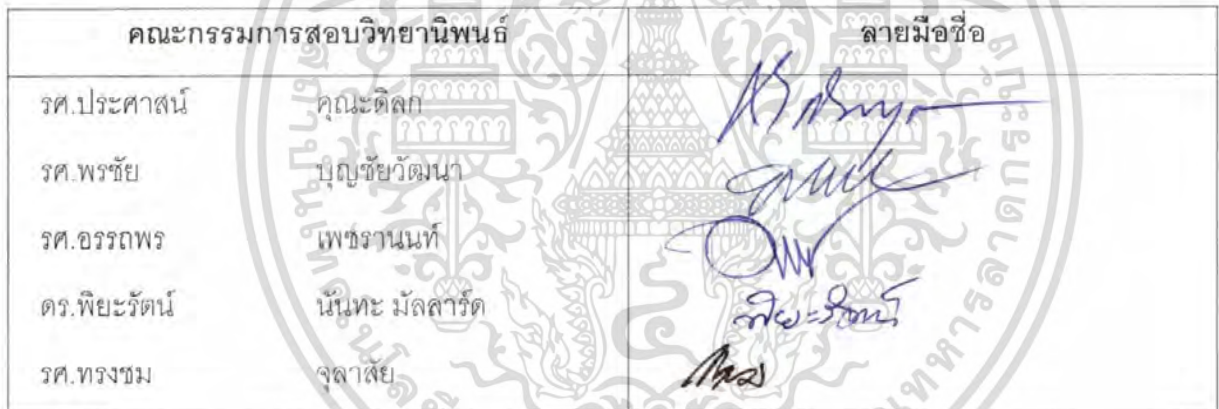 คณะกรรมการสอบวิทยานิพนธ์ ลายมือชื่อ
รศ.ประศาสน์ คุณะดิลก
รศ.พรชัย บุญชัยวัฒนา
รศ.อรรถพร เพชรานนท์
ดร.พิยะรัตน์ นันทะ มัลลาร์ด พิยะรัตน์
รศ.ทรงชม จุลาสัย